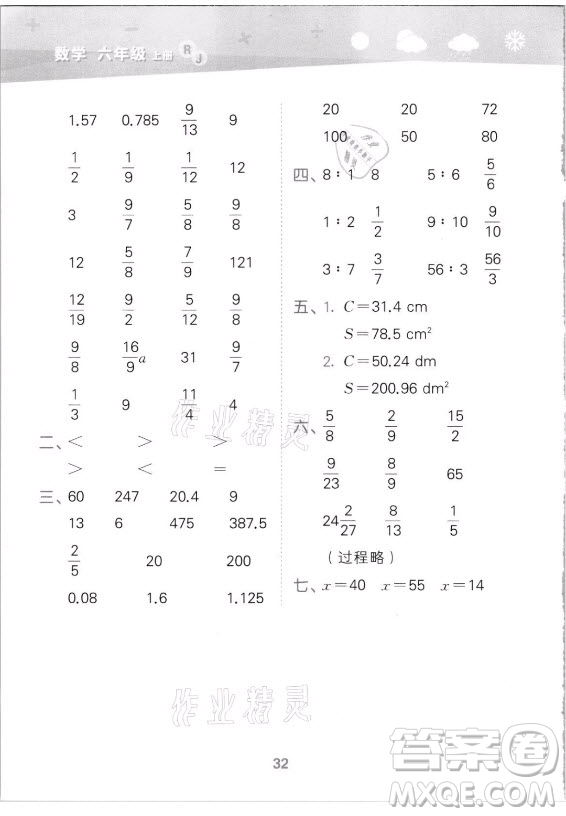 数学 六年级 上册 RJ
1.57 0.785 9/13 9
1/2 1/9 1/12 12
3 9/7 5/8 9/8
12 5/8 7/9 121
12/19 9/8 5/12 9/8
9/8 16/9 a 31 9/7
1/3 9 11/4 4
二、< > >
> < =
三、60 247 20.4 9
13 6 475 387.5
2/5 20 200
0.08 1.6 1.125
20 20 72
100 50 80
四、8∶1 8 5∶6 5/6
1∶2 1/2 9∶10 9/10
3∶7 3/7 56∶3 56/3
五、1. C=31.4 cm
S=78.5 cm²
2. C=50.24 dm
S=200.96 dm²
六、5/8 2/9 15/2
9/23 8/9 65
24 2/27 8/13 1/5
(过程略)
七、x=40 x=55 x=14
作业精灵
作业精灵
32
答案圈
MXQE.COM